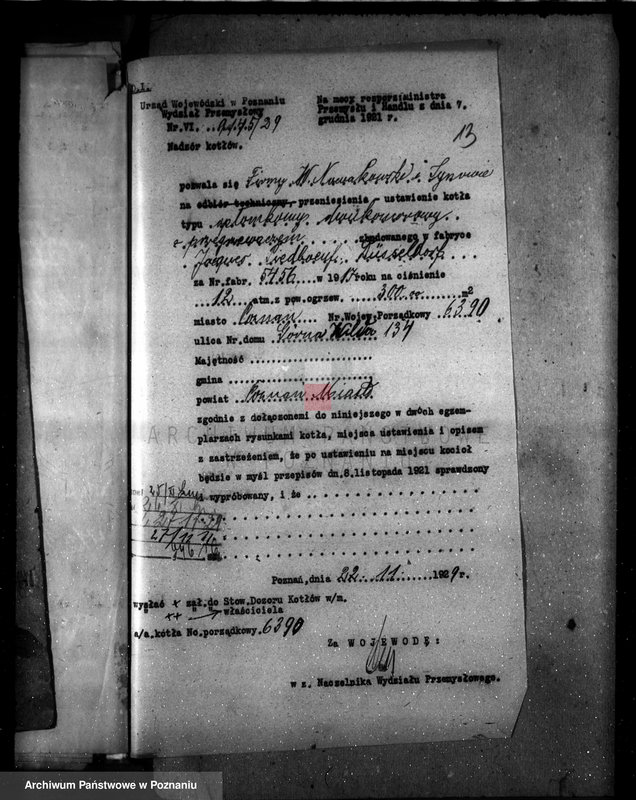 Urząd Wojewódzki w Poznaniu
Wydział Przemysłowy
Nr.VI. 9145/29
Nadzór kotłów.
Na mocy rozporz.ministra
Przemysłu i Handlu z dnia 7.
grudnia 1921 r.
13
pozwala się Firmy W. Nowakowski i Synowie
na odbiór techniczny, przeniesienia, ustawienie kotła
typu płomkowy dwukomorowy
z przegrzewaczem zbudowanego w fabryce
Jacques Piedboeuf Düsseldorf
za Nr.fabr. 5456 w 1917 roku na ciśnienie
12 atm.z pow.ogrzew. 300.00 m2
miasto Poznań Nr.Wojew.Porządkowy 6390
ulica Nr.domu Górna Wilda 134
Majętność
gmina
powiat Poznań Miasto
zgodnie z dołączonemi do niniejszego w dwóch egzem-
plarzach rysunkami kotła, miejsca ustawienia i opisem
z zastrzeżeniem, że po ustawieniu na miejscu kocioł
będzie w myśl przepisów dn.8.listopada 1921 sprawdzony
i wypróbowany, i że
27/11
Poznań,dnia 22.11. 1929 r.
wysłać x zał.do Stow.Dozoru Kotłów w/m.
xx " " właściciela
a/a.kotła No.porządkowy. 6390
Za WOJEWODĘ:
w z. Naczelnika Wydziału Przemysłowego.
ARCHIWUM PAŃSTWOWE
W POZNANIU
Archiwum Państwowe w Poznaniu